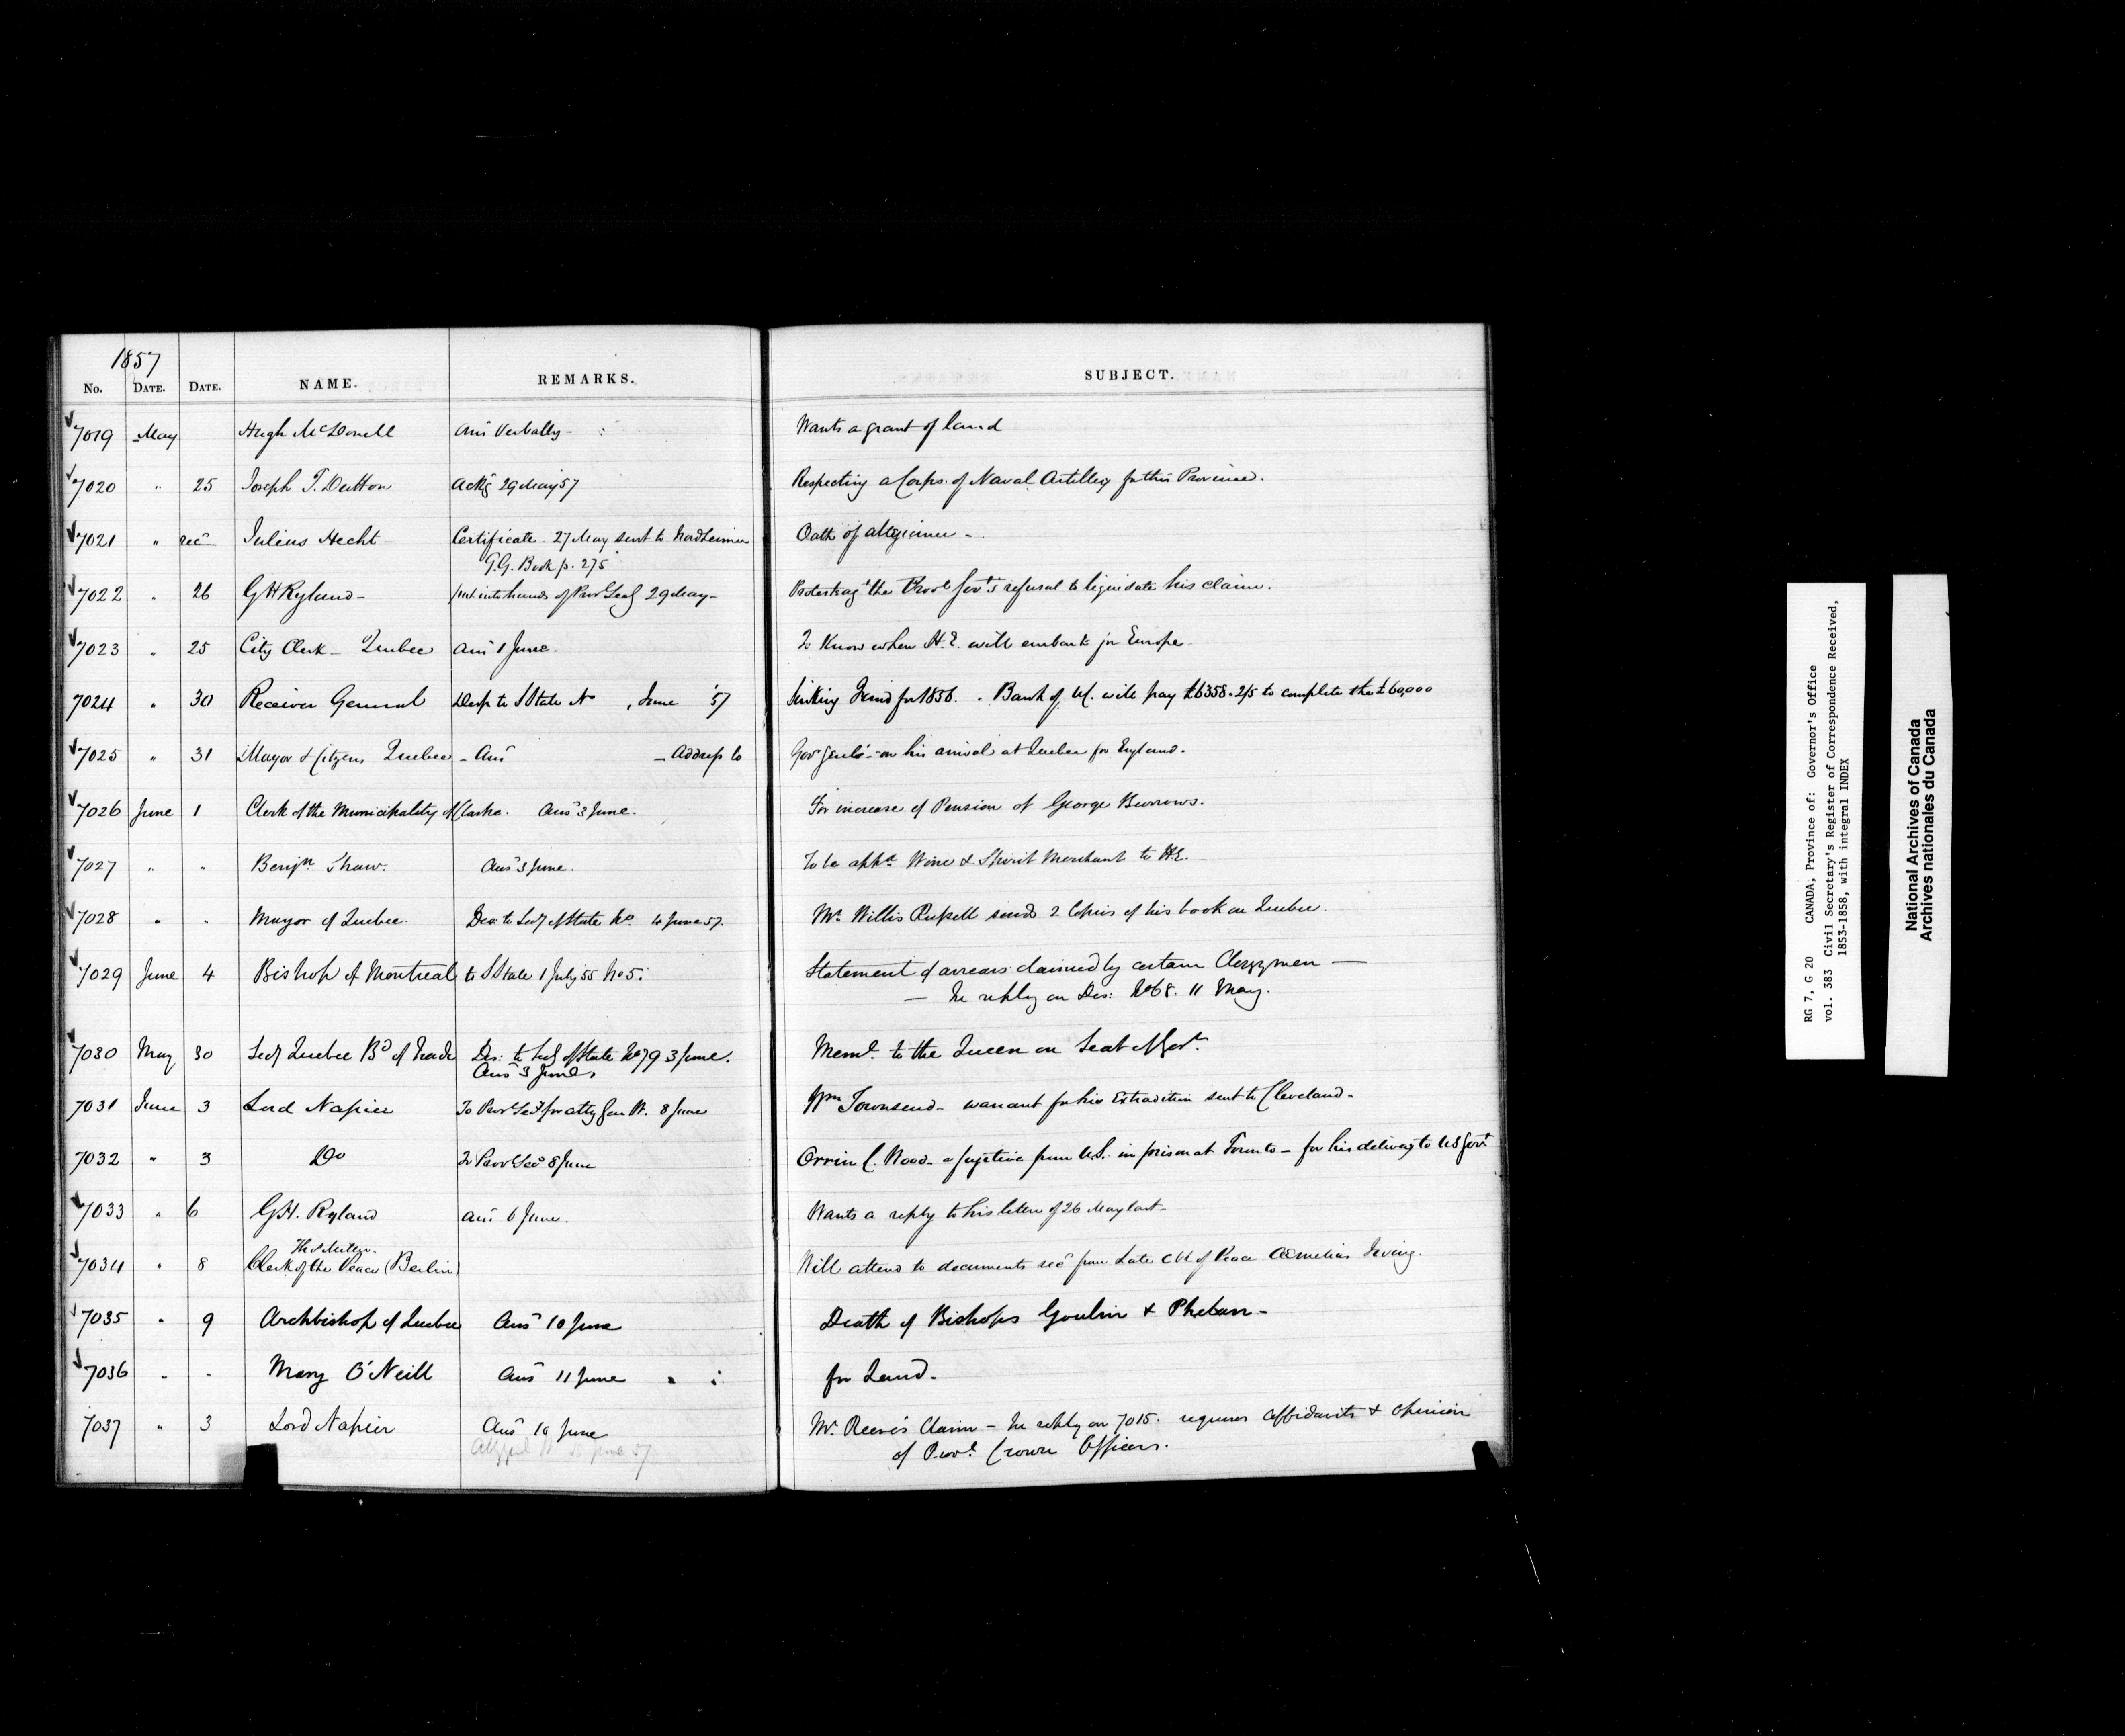 1857
No. DATE. DATE. NAME. REMARKS. SUBJECT.
7019 May Hugh McDonell Ansd Verbally - Wants a grant of land
7020 " 25 Joseph T. Dutton Ackg 29 May 57 Respecting a Corps of Naval Artillery for this Province.
7021 " recd Julius Hecht - Certificate 27 May sent to Nordheimer Oath of allegiance -
G.G. Book p. 275
7022 " 26 G H Ryland - put into hands of Prov Secy 29 May - Protesting the Provl Govt's refusal to liquidate his claim.
7023 " 25 City Clerk - Quebec Ansd 1 June. To Know when H.E. will embark for Europe
7024 " 30 Receiver General Desp to S State No , June '57 Sinking Fund for 1856. Bank of U.C. will pay £6358.2/5 to complete the £60,000
7025 " 31 Mayor & Citizens Quebec - Ansd - Address to Govr Genl - on his arrival at Quebec for England.
7026 June 1 Clerk of the Municipality of Clarke. Ansd 3 June. For increase of Pension of George Burrows.
7027 " " Benjn Shaw. Ansd 3 June. To be appd Wine & Spirit Merchant to H.E.
7028 " " Mayor of Quebec. Des: to Secy of State No. 4 June 57. Mr Willis Russell sends 2 Copies of his book on Quebec.
7029 June 4 Bishop of Montreal to S State 1 July 55 No 5. Statement of arrears claimed by certain Clergymen -
- In reply on Des: No 68. 11 May.
7030 May 30 Secy Quebec Bd of Trade Des: to Secy of State No 79 3 June. Meml. to the Queen on Seat of Govt.
Ansd 3 June
7031 June 3 Lord Napier To Provl Secy for Atty Gen W. 8 June Wm Townsend - warrant for his Extradition sent to Cleveland -
7032 " 3 Do To Prov Secy 8 June Orrin C. Wood - a fugitive from U.S. in prison at Toronto - for his delivery to US Govt
7033 " 6 G.H. Ryland Ansd 6 June. Wants a reply to his letter of 26 May last -
7034 " 8 Clerk of the Peace (Berlin) Will attend to documents recd from Late Clk of Peace Æmelius Irving.
7035 " 9 Archbishop of Quebec Ansd 10 June Death of Bishops Gaulin & Phelan -
7036 " " Mary O'Neill Ansd 11 June for Land.
7037 " 3 Lord Napier Ansd 19 June Mr Reeve's Claim - In reply on 7015. requires affidavits & opinion
of Provl. Crown Officers.
RG 7, G 20 CANADA, Province of: Governor's Office
vol. 383 Civil Secretary's Register of Correspondence Received,
1853-1858, with integral INDEX
National Archives of Canada
Archives nationales du Canada